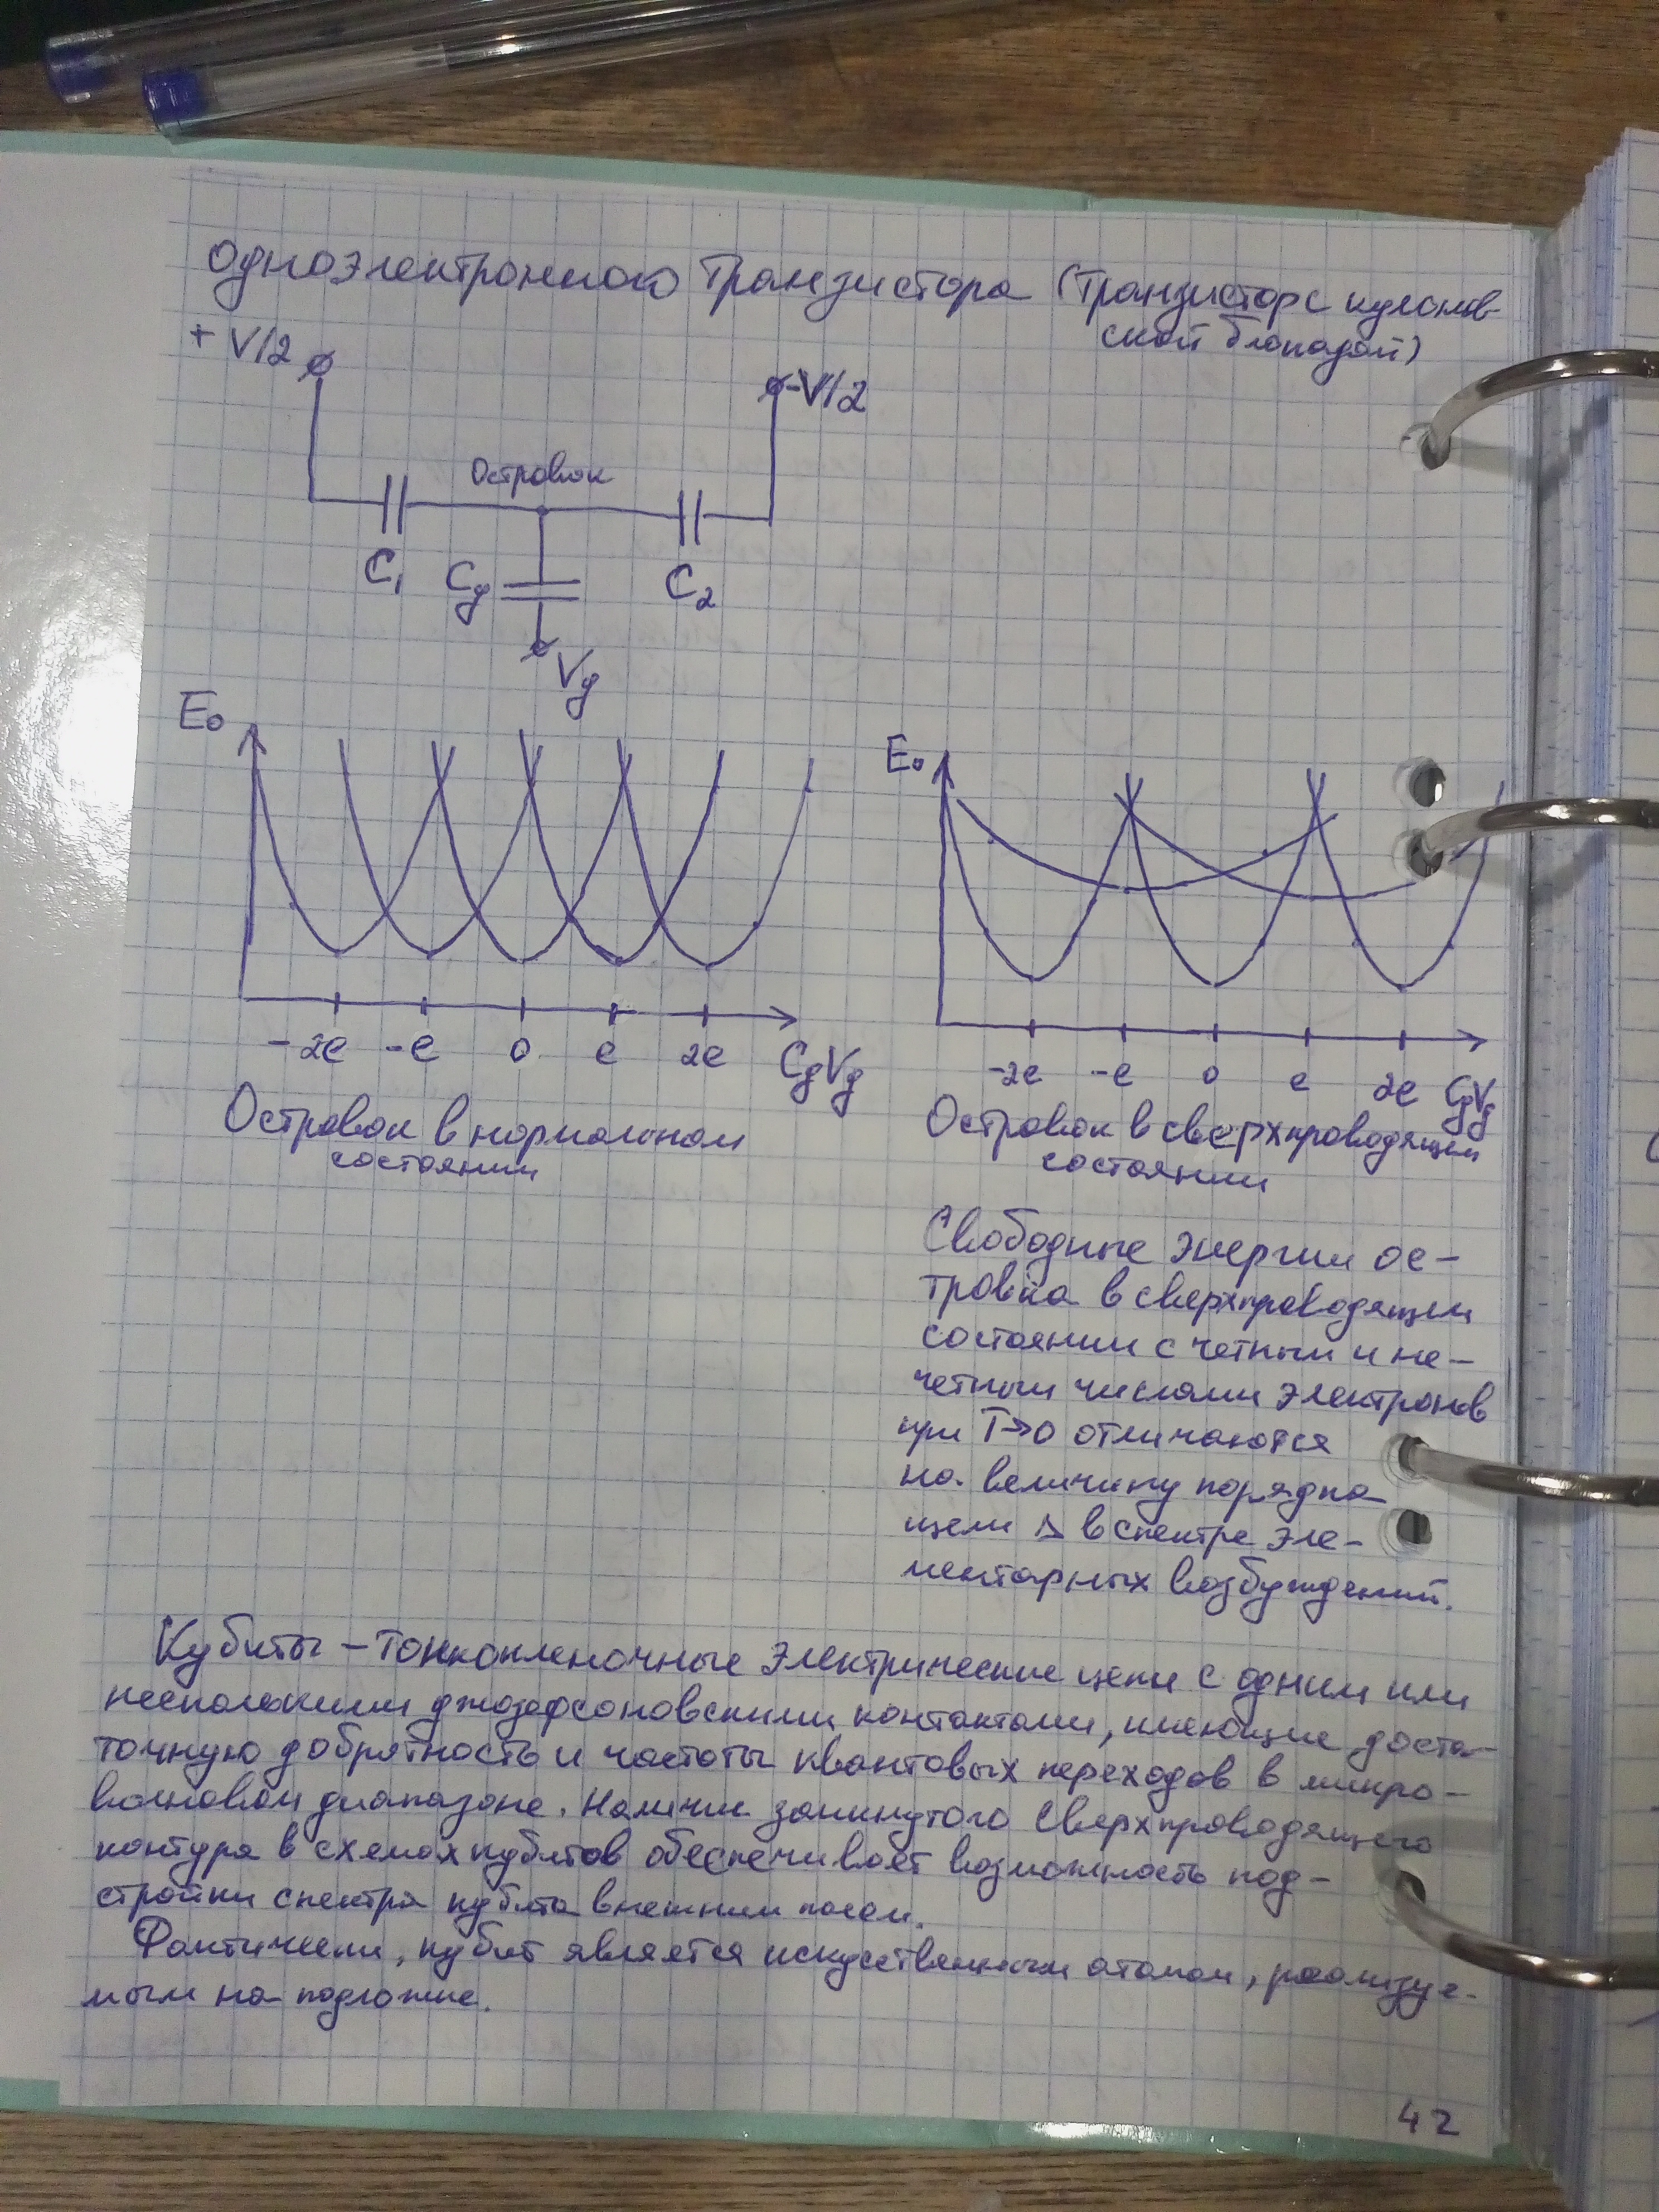 одноэлектронного транзистора (транзистора с кулонов-
ской блокадой)
+ V/2
-V/2
Островок
C₁
Cg
C₂
Vg
E₀
E₀
-2e -e 0 e 2e CgVg
-2e -e 0 e 2e CgVg
Островок в нормальном
состоянии
Островок в сверхпроводящем
состоянии
Свободные энергии ос-
тровка в сверхпроводящем
состоянии с четным и не-
четным числами электронов
при T→0 отличаются
на величину порядка
щели Δ в спектре эле-
ментарных возбуждений.
Кубиты – тонкопленочные электрические цепи с одним или
несколькими джозефсоновскими контактами, имеющие доста-
точную добротность и частоты квантовых переходов в микро-
волновом диапазоне. Наличие замкнутого сверхпроводящего
контура в схемах кубитов обеспечивает возможность под-
стройки спектра кубита внешним полем.
Фактически, кубит является искуственным атомом, реализуе-
мым на подложке.
42